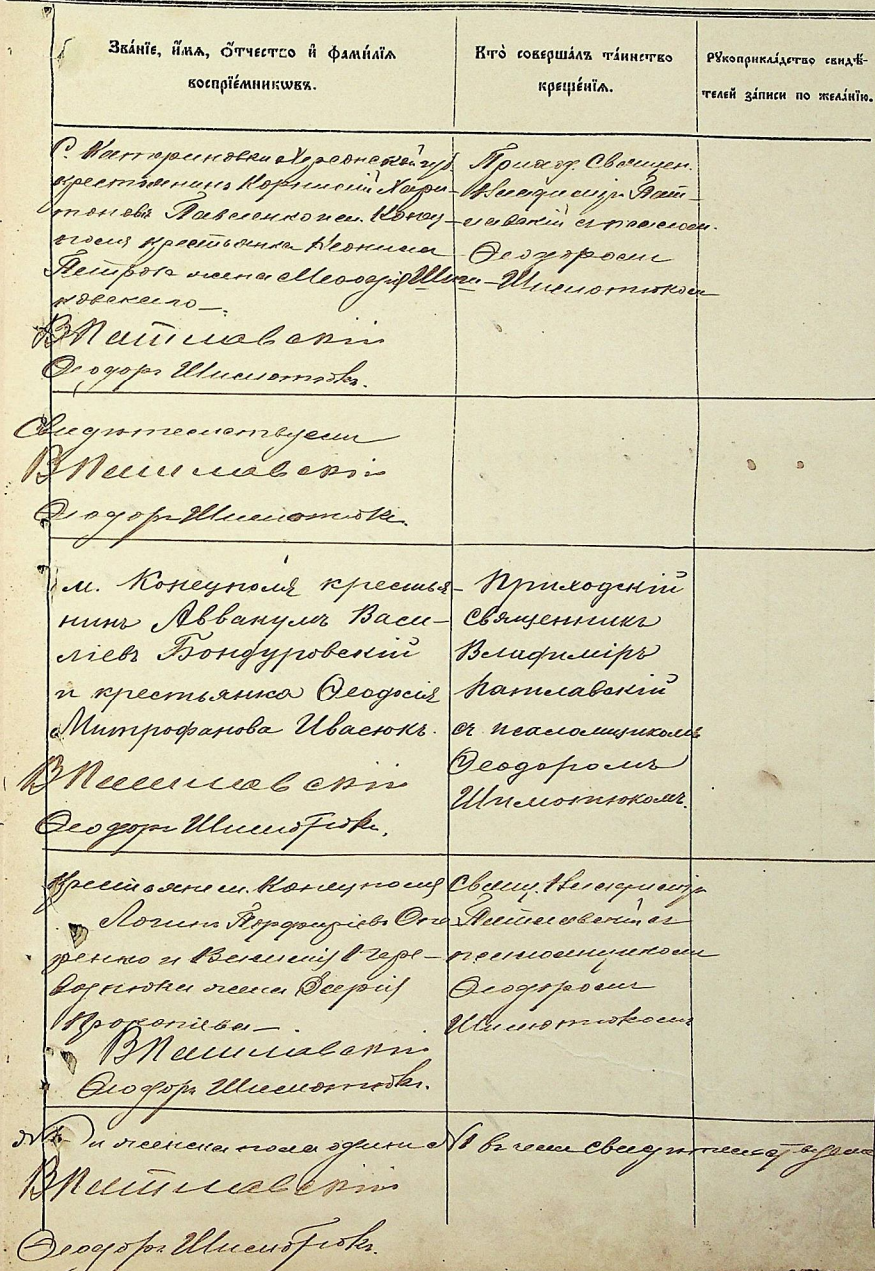 Зва́нїе, и́мѧ, ѻ҆́тчество и҆ фами́лїѧ
воспрїе́мникѡвъ.
Кто̀ соверша́лъ та́инство
креще́нїѧ.
Рꙋкоприкла́дство свидѣ́-
телей за́писи по жела́нїю.
С. Катериновки Херсонской губ.
крестьянинъ Корнилій Хари-
тоновъ Павленко и м. Конец-
поля крестьянка Неонила
Петрова жена Меѳодія
ковскаго
ВПатлавскій
Ѳеодоръ Шимотюкъ.
Приход. Священ.
Владиміръ Пат-
лавскій съ псалом.
Ѳеодоромъ
Шимотюком
Свидѣтельствуемъ
ВПатлавскій
Ѳеодоръ Шимотюкъ.
м. Конецполя крестья-
нинъ Аввакумъ Васи-
ліевъ Бондуровскій
и крестьянка Ѳеодосія
Митрофанова Ивасюкъ.
ВПатлавскій
Ѳеодоръ Шимотюкъ.
Приходскій
священникъ
Владиміръ
Патлавскій
съ псаломщикомъ
Ѳеодоромъ
Шимотюкомъ.
Крестьяне м. Конецполя
Логинъ Порфиріевъ
ренко и
жена Дарія
Прокопіева
ВПатлавскій
Ѳеодоръ Шимотюкъ.
Свящ. Владиміръ
Патлавскій съ
псаломщикомъ
Ѳеодоромъ
Шимотюкомъ
и женска пола одинъ №1 въ чемъ свидѣтельствуемъ
ВПатлавскій
Ѳеодоръ Шимотюкъ.